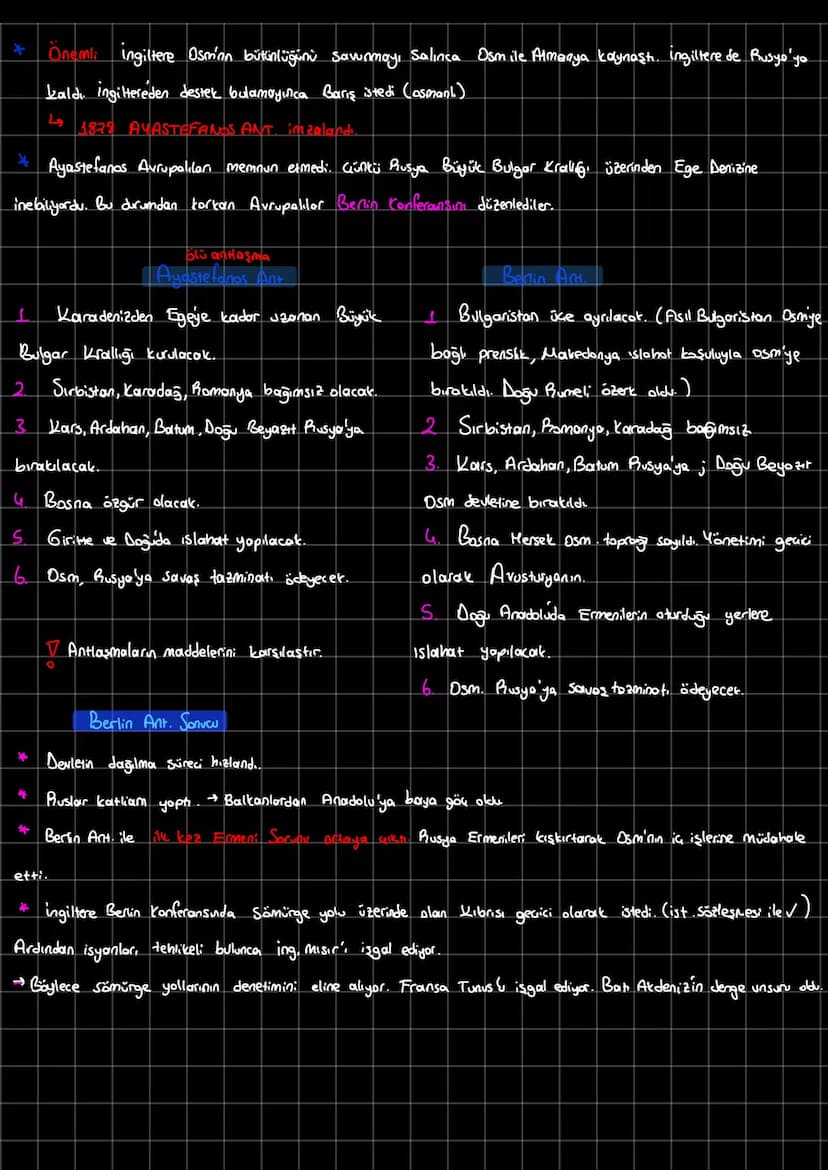 * Önemli İngiltere Osm'nın bütünlüğünü savunmayı salınca Osm ile Almanya kaynaştı. İngiltere de Rusya'ya
kaldı. İngiltere'den destek bulamayınca Barış istedi (osmanlı)
↳ 1878 AYASTEFANOS ANT. imzalandı.
* Ayastefanos Avrupalıları memnun etmedi. Çünkü Rusya Büyük Bulgar Krallığı üzerinden Ege Denizine
inebiliyordu. Bu durumdan korkan Avrupalılar Berlin Konferansını düzenlediler.
ölü antlaşma
Ayastefanos Ant
1. Karadenizden Ege'ye kadar uzanan Büyük
Bulgar Krallığı kurulacak.
2. Sırbistan, Karadağ, Romanya bağımsız olacak.
3 Kars, Ardahan, Batum, Doğu Beyazıt Rusya'ya
bırakılacak.
4. Bosna özgür olacak.
5. Giritte ve Doğu'da ıslahat yapılacak.
6. Osm, Rusya'ya savaş tazminatı ödeyecek.
! Antlaşmaların maddelerini karşılaştır.
Berlin Ant.
1 Bulgaristan üçe ayrılacak. (Asıl Bulgaristan Osm'ye
bağlı prenslik, Makedonya ıslahat koşuluyla osm'ye
bırakıldı. Doğu Rumeli özerk oldu.)
2 Sırbistan, Romanya, Karadağ bağımsız
3. Kars, Ardahan, Batum Rusya'ya ; Doğu Beyazıt
Osm devletine bırakıldı
4. Bosna Hersek Osm. toprağı sayıldı. Yönetimi geçici
olarak Avusturyanın.
5. Doğu Anadolu'da Ermenilerin oturduğu yerlere
ıslahat yapılacak.
6. Osm. Rusya'ya savaş tazminatı ödeyecek.
Berlin Ant. Sonucu
* Devletin dağılma süreci hızlandı.
* Ruslar katliam yaptı. → Balkanlardan Anadolu'ya baya göç oldu
* Berlin Ant. ile ilk kez Ermeni Sorunu ortaya çıktı Rusya Ermenileri kışkırtarak Osm'nın iç işlerine müdahale
etti.
* İngiltere Berlin Konferansında Sömürge yolu üzerinde olan Kıbrısı geçici olarak istedi. (ist. Sözleşmesi ile ✓)
Ardından isyanları tehlikeli bulunca ing. Mısır'ı işgal ediyor.
→ Böylece sömürge yollarının denetimini eline alıyor. Fransa Tunus'u işgal ediyor. Batı Akdenizin denge unsuru oldu.